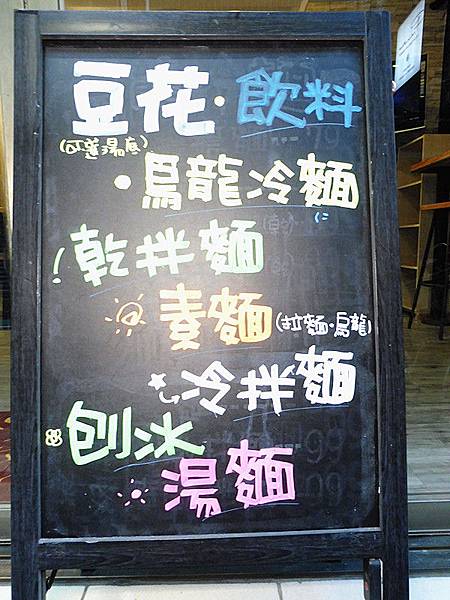 豆花·飲料
(可薑湯底)
·烏龍冷麵
!乾拌麵
素麵(拉麵·烏龍)
冷拌麵
刨冰
湯麵